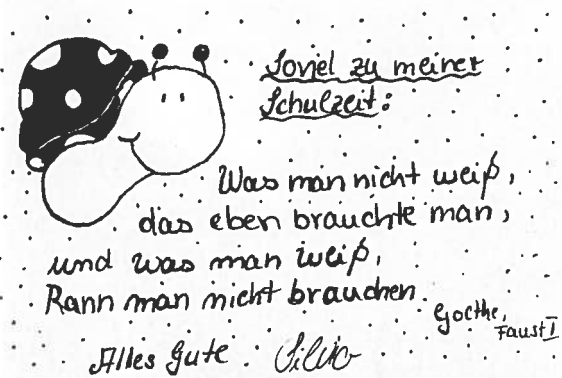 Soviel zu meiner
Schulzeit:
Was man nicht weiß,
das eben brauchte man,
und was man weiß,
Kann man nicht brauchen.
Goethe,
Faust I
Alles Gute Silvia